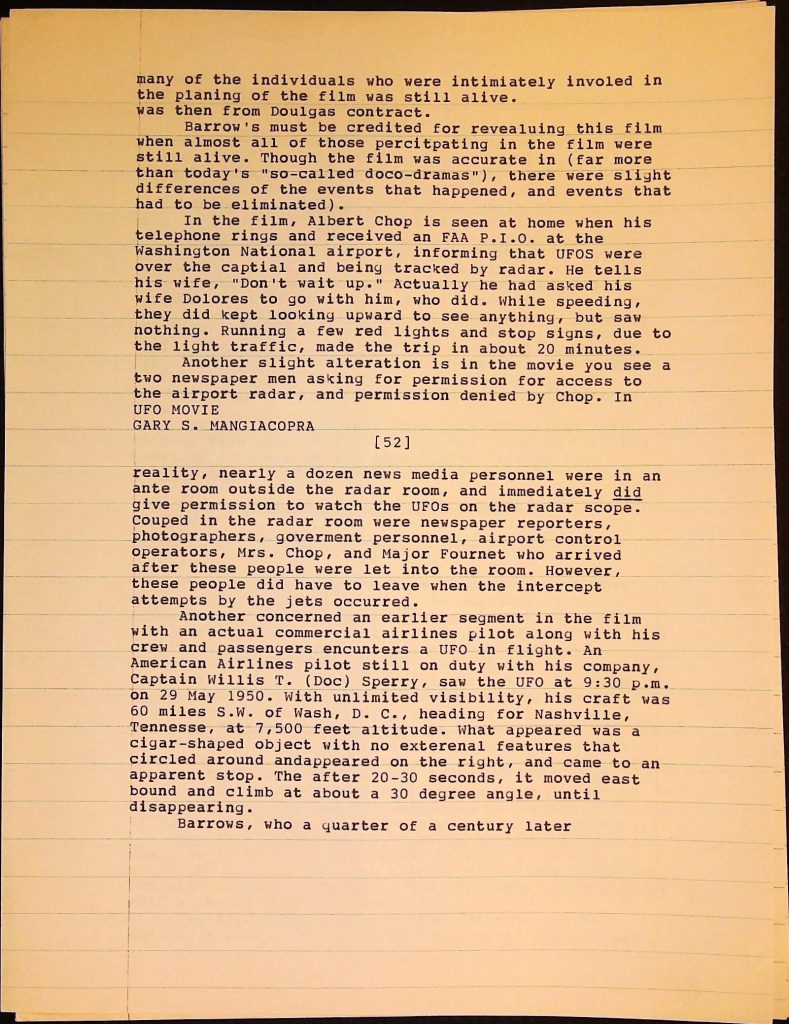 many of the individuals who were intimiately involed in
the planing of the film was still alive.
was then from Doulgas contract.
Barrow's must be credited for revealuing this film
when almost all of those percitpating in the film were
still alive. Though the film was accurate in (far more
than today's "so-called doco-dramas"), there were slight
differences of the events that happened, and events that
had to be eliminated).
In the film, Albert Chop is seen at home when his
telephone rings and received an FAA P.I.O. at the
Washington National airport, informing that UFOS were
over the captial and being tracked by radar. He tells
his wife, "Don't wait up." Actually he had asked his
wife Dolores to go with him, who did. While speeding,
they did kept looking upward to see anything, but saw
nothing. Running a few red lights and stop signs, due to
the light traffic, made the trip in about 20 minutes.
Another slight alteration is in the movie you see a
two newspaper men asking for permission for access to
the airport radar, and permission denied by Chop. In
UFO MOVIE
GARY S. MANGIACOPRA
[52]
reality, nearly a dozen news media personnel were in an
ante room outside the radar room, and immediately did
give permission to watch the UFOs on the radar scope.
Couped in the radar room were newspaper reporters,
photographers, goverment personnel, airport control
operators, Mrs. Chop, and Major Fournet who arrived
after these people were let into the room. However,
these people did have to leave when the intercept
attempts by the jets occurred.
Another concerned an earlier segment in the film
with an actual commercial airlines pilot along with his
crew and passengers encunters a UFO in flight. An
American Airlines pilot still on duty with his company,
Captain Willis T. (Doc) Sperry, saw the UFO at 9:30 p.m.
on 29 May 1950. With unlimited visibility, his craft was
60 miles S.W. of Wash, D. C., heading for Nashville,
Tennesse, at 7,500 feet altitude. What appeared was a
cigar-shaped object with no exterenal features that
circled around andappeared on the right, and came to an
apparent stop. The after 20-30 seconds, it moved east
bound and climb at about a 30 degree angle, until
disappearing.
Barrows, who a quarter of a century later